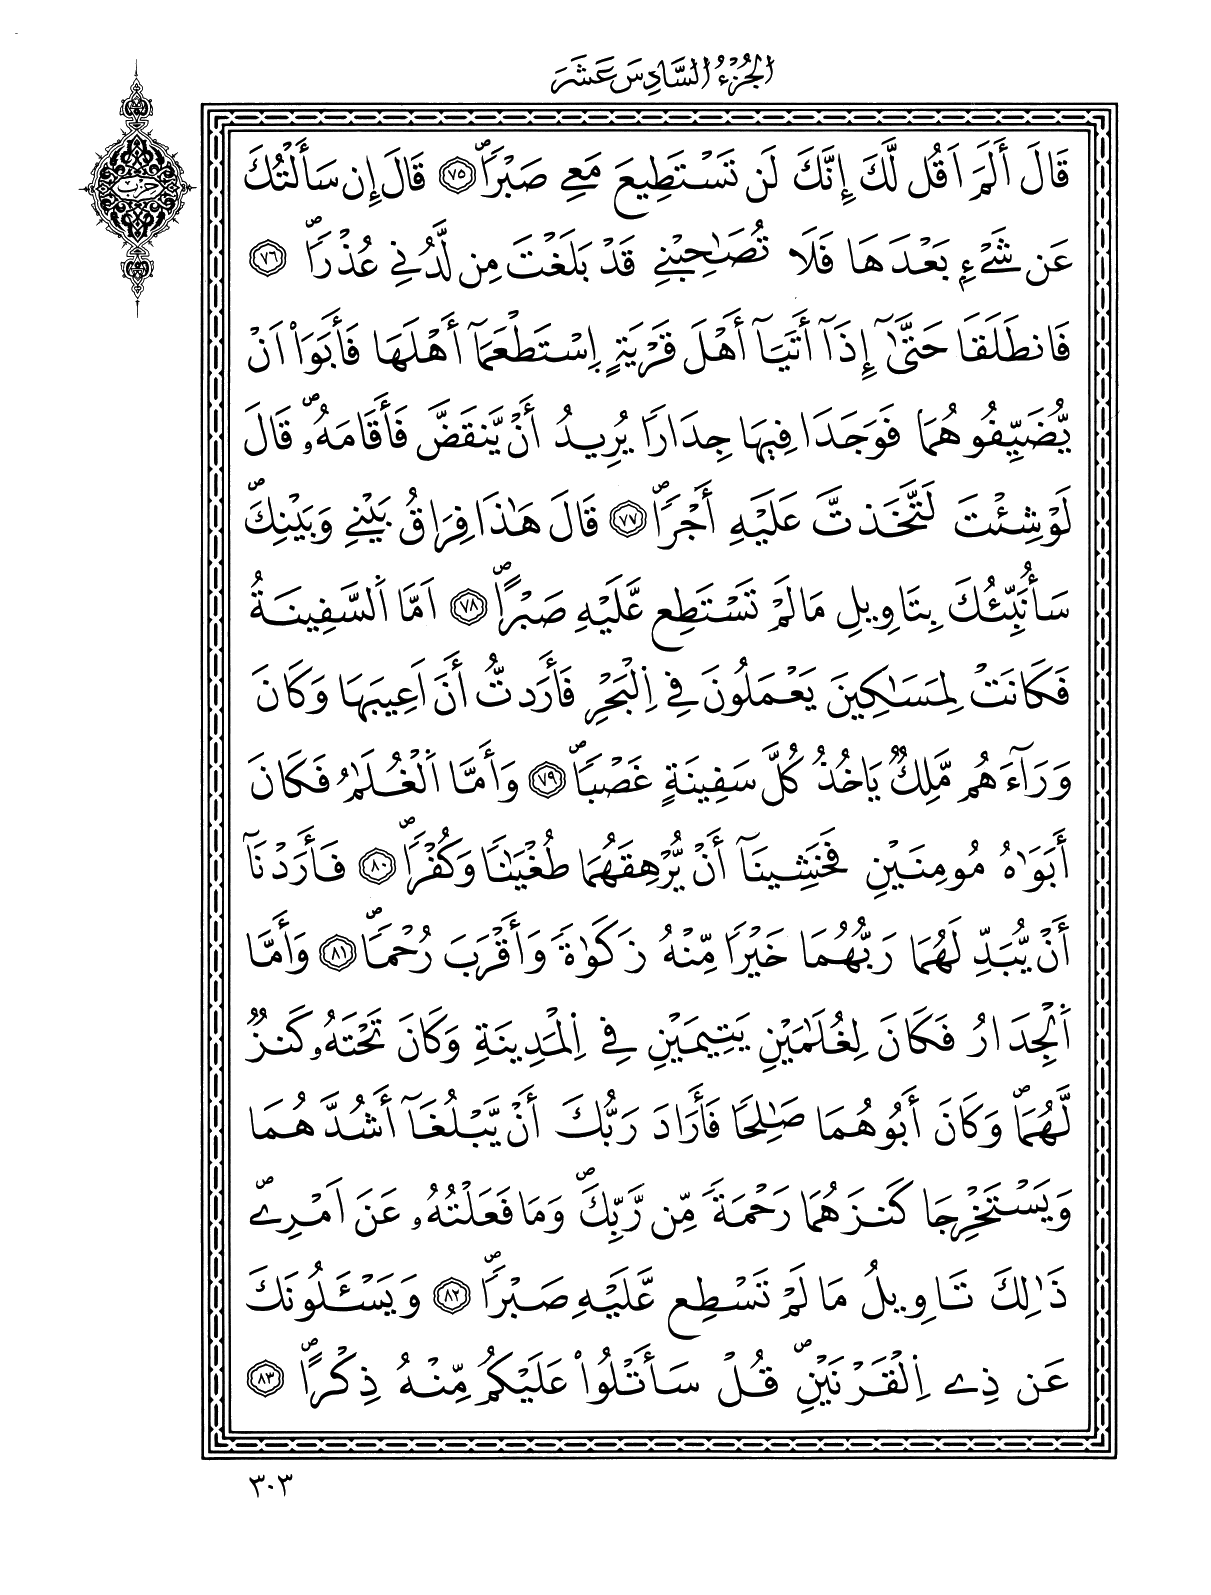 الجُزْءُ السَّادِسَ عَشَرَ
حِزْب
قَالَ أَلَمَ اَقُل لَّكَ إِنَّكَ لَن تَسْتَطِيعَ مَعِے صَبْرࣰاۖ ٧٥ قَالَ إِن سَأَلْتُكَ
عَن شَےْءِۢ بَعْدَهَا فَلَا تُصَٰحِبْنِے قَدْ بَلَغْتَ مِن لَّدُنِے عُذْراࣰۖ ٧٦
فَانطَلَقَا حَتَّىٰٓ إِذَآ أَتَيَآ أَهْلَ قَرْيَةٍ اِسْتَطْعَمَآ أَهْلَهَا فَأَبَوَاْ اَنْ
يُّضَيِّفُوهُمَا فَوَجَدَا فِيهَا جِدَاراࣰ يُرِيدُ أَنْ يَّنقَضَّ فَأَقَامَهُۥۖ قَالَ
لَوْ شِئْتَ لَتَّخَذتَّ عَلَيْهِ أَجْراࣰۖ ٧٧ قَالَ هَٰذَا فِرَاقُ بَيْنِے وَبَيْنِكَۖ
سَأُنَبِّئُكَ بِتَاوِيلِ مَا لَمْ تَسْتَطِع عَّلَيْهِ صَبْراًۖ ٧٨ اَمَّا اَ۬لسَّفِينَةُ
فَكَانَتْ لِمَسَٰكِينَ يَعْمَلُونَ فِے اِ۬لْبَحْرِ فَأَرَدتُّ أَنَ اَعِيبَهَا وَكَانَ
وَرَآءَهُم مَّلِكࣱ يَاخُذُ كُلَّ سَفِينَةٍ غَصْباࣰۖ ٧٩ وَأَمَّا اَ۬لْغُلَٰمُ فَكَانَ
أَبَوَٰهُ مُومِنَيْنِ فَخَشِينَآ أَنْ يُّرْهِقَهُمَا طُغْيَٰناࣰ وَكُفْراࣰۖ ٨٠ فَأَرَدْنَآ
أَنْ يُّبَدِّلَهُمَا رَبُّهُمَا خَيْراࣰ مِّنْهُ زَكَوٰةࣰ وَأَقْرَبَ رُحْماࣰۖ ٨١ وَأَمَّا
اَ۬لْجِدَارُ فَكَانَ لِغُلَٰمَيْنِ يَتِيمَيْنِ فِے اِ۬لْمَدِينَةِ وَكَانَ تَحْتَهُۥ كَنزࣱ
لَّهُمَاۖ وَكَانَ أَبُوهُمَا صَٰلِحاࣰ فَأَرَادَ رَبُّكَ أَنْ يَّبْلُغَآ أَشُدَّهُمَا
وَيَسْتَخْرِجَا كَنزَهُمَا رَحْمَةࣰ مِّن رَّبِّكَۖ وَمَا فَعَلْتُهُۥ عَنَ اَمْرِےۖ
ذَٰلِكَ تَاوِيلُ مَا لَمْ تَسْطِع عَّلَيْهِ صَبْراࣰۖ ٨٢ وَيَسْـَٔلُونَكَ
عَن ذِے اِ۬لْقَرْنَيْنِۖ قُلْ سَأَتْلُواْ عَلَيْكُم مِّنْهُ ذِكْراًۖ ٨٣
٣٠٣